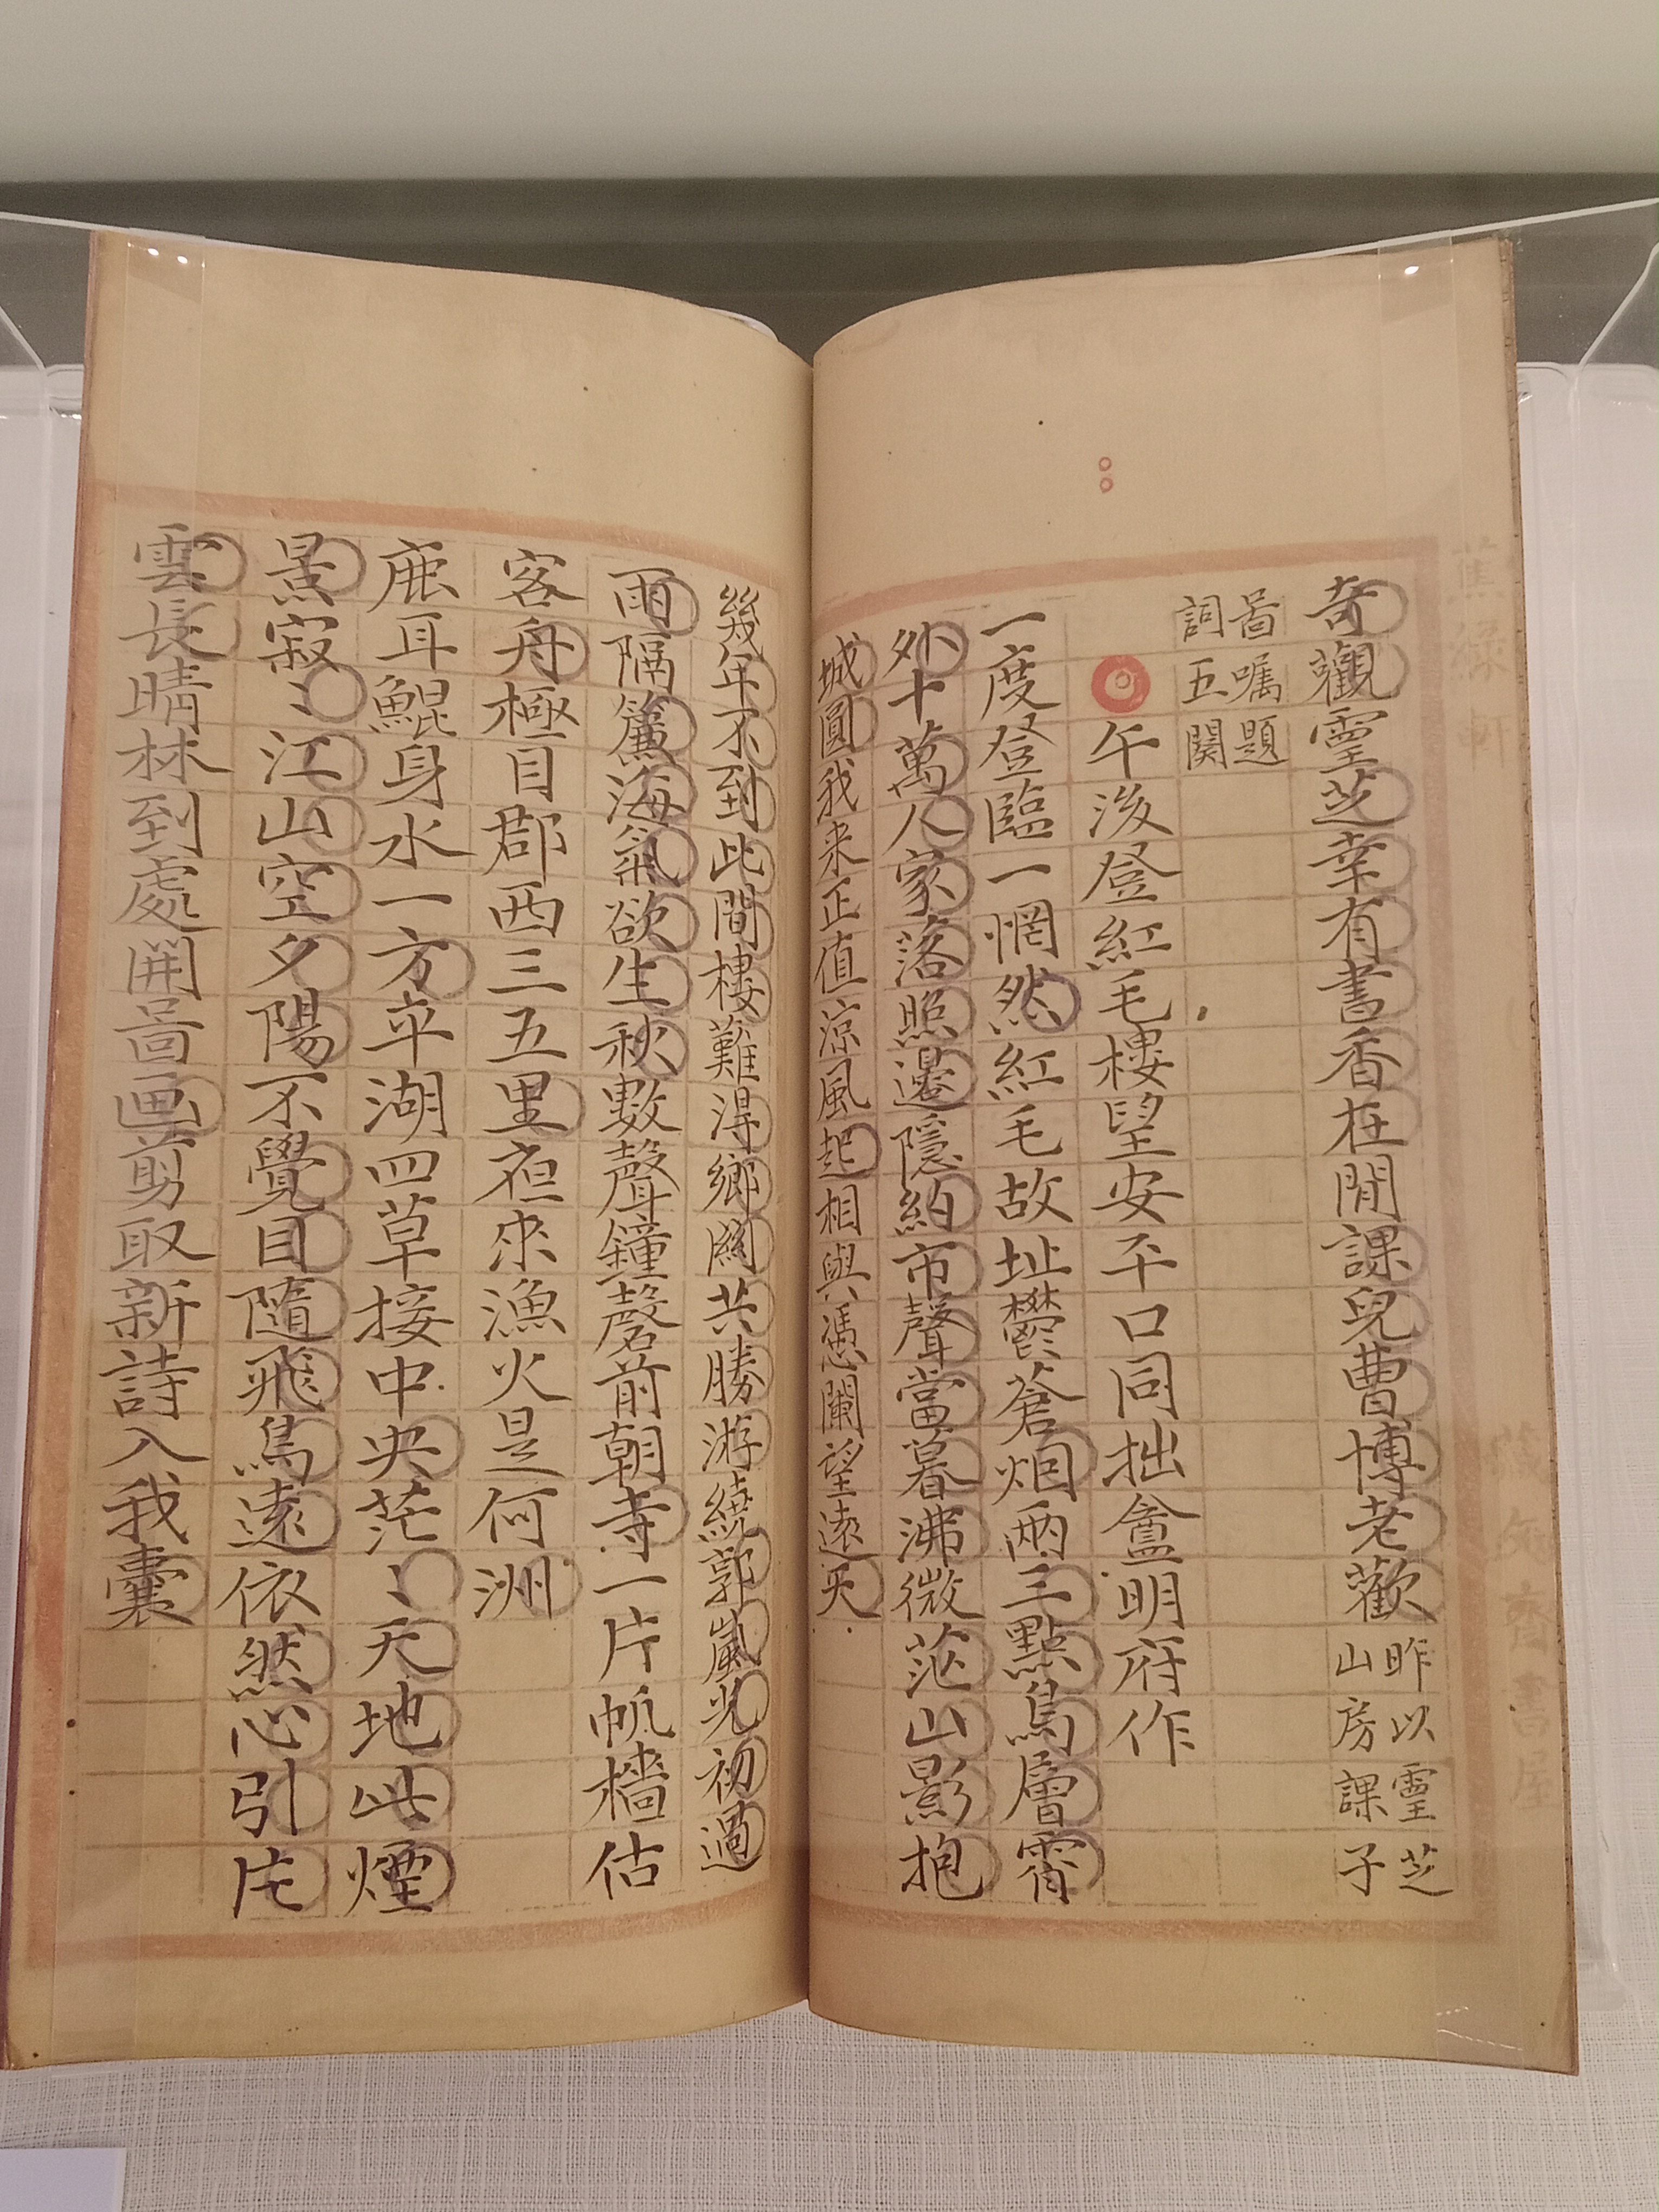 奇觀靈芝幸有書香在閒課兒曹博老歡昨以靈芝山房課子
啚嘱題詞五闋
午後登紅毛樓望安平口同拙盦明府作
一度登臨一惘然紅毛故址鬱蒼烟兩三點鳥層霄
外十萬人家落照邊隱約市聲當暮沸微茫山影抱
城圓我来正值涼風起相與憑闌望遠天
幾年不到此間樓難淂鄉關共勝游繞郭嵐光初過
雨隔簾海氣欲生秋數聲鐘磬前朝寺一片帆檣估
客舟極目郡西三五里夜來漁火是何洲
鹿耳鯤身水一方平湖四草接中央茫〻天地此煙
景寂〻江山空夕陽不覺目隨飛鳥遠依然心引片
雲長晴林到處開啚画剪取新詩入我囊
蕉綠軒
書屋